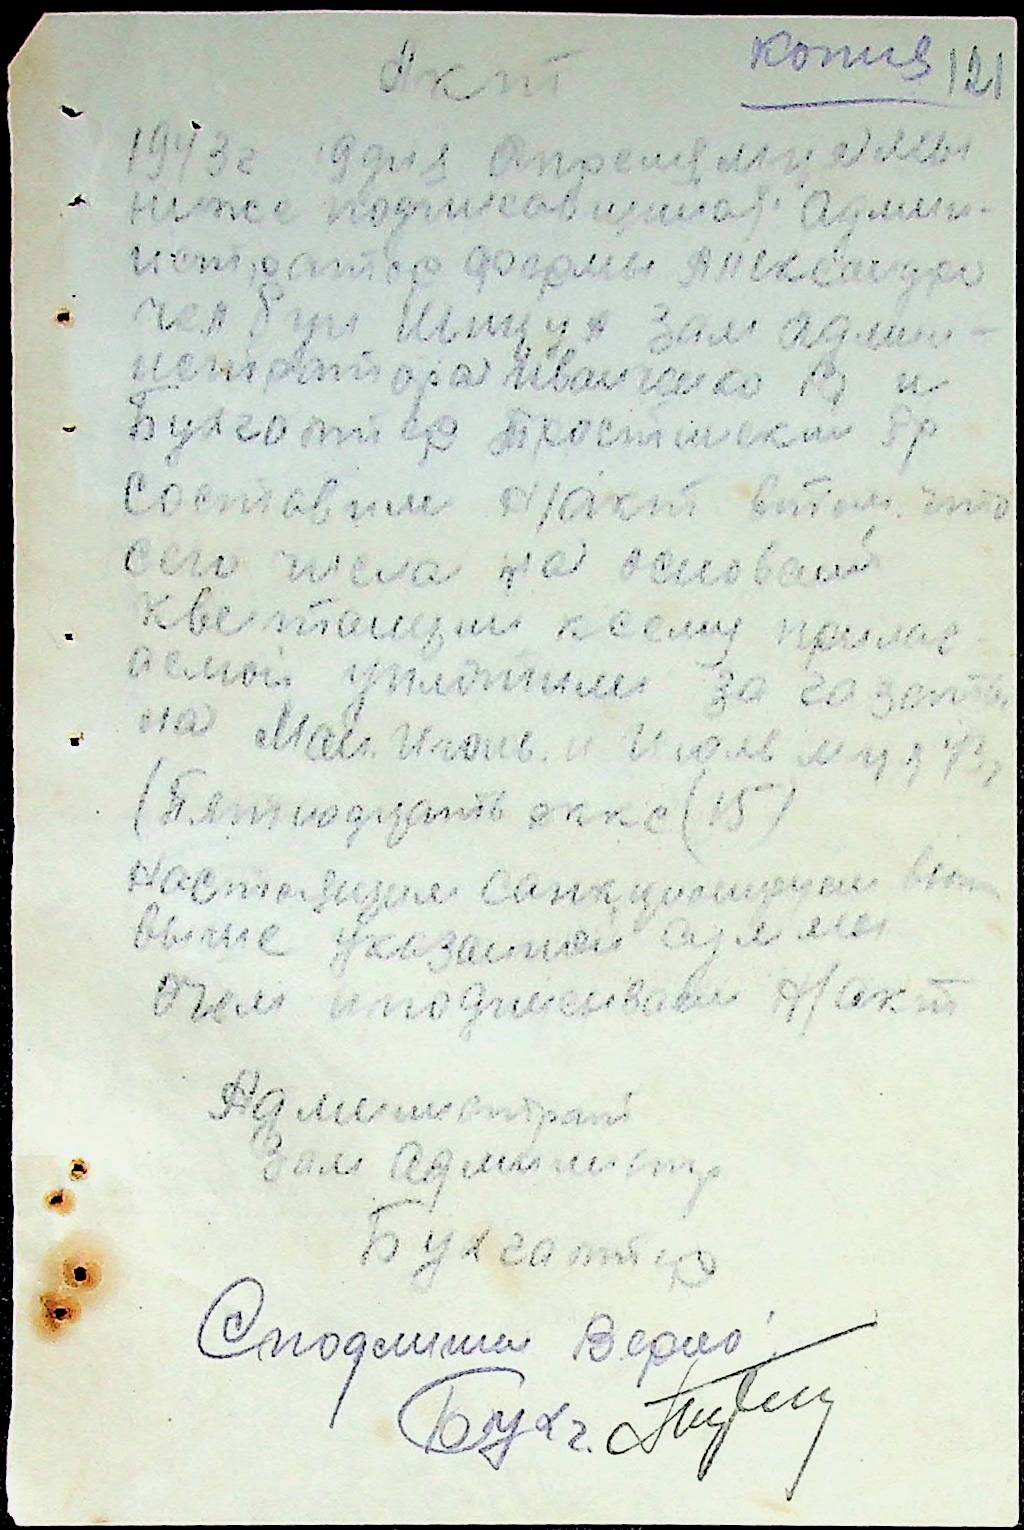 Копия 121
Акт
1943 г 9 дня Апреля м-ца мы
ниже подписавшиеся Адми-
нистратор фермы Александро
Зам Адми-
нистратора Иванченко В и
Бухгалтер
Составили Н/акт втом. что
сего числа на основании
квентанции ксему прилаг
аемой уплотили за газоты
на Май. Июнь. и Июль м-ц 43
(Пятнадцать экке (15)
Настоящим санкционируем
выше указанной суммы
Очем иподписываем Н/акт
Администрат
Зам Администр
Бухгалтер
Сподлиным Верно!
Бухг.